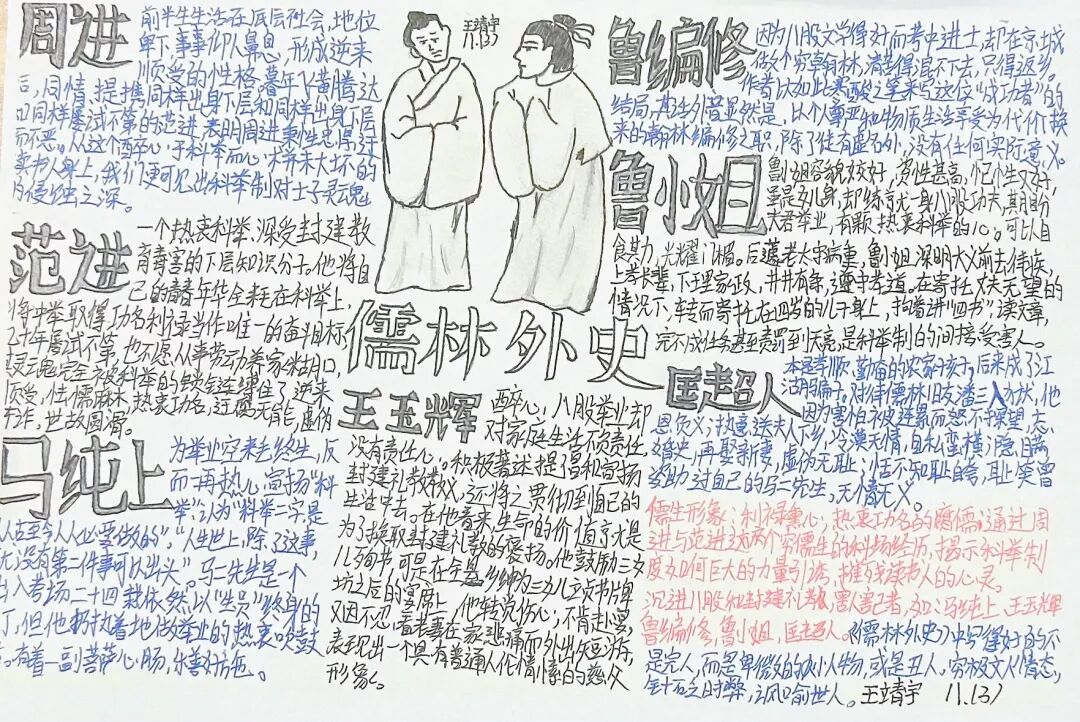 周进
前半生生活在底层社会,地位
卑下,事事仰人鼻息,形成逆来
顺受的性格。暮年飞黄腾达
后,同情、提携同样出身下层
和同样屡试不第的范进,表明周进秉性忠厚,迂
而不恶。从这个醉心于科举而心术并未大坏的
读书人身上,我们更可见出科举制对士子灵魂
的侵蚀之深。
范进
一个热衷科举、深受封建教
育毒害的下层知识分子。他将自
己的青春年华全耗在科举上,
将中举取得功名利禄当作唯一的奋斗目标,
二十年屡试不第,也不愿从事劳动养家糊口,
其灵魂完全被科举的
顺受,性懦麻木,热衷功名,迂腐无能,虚伪
做作,世故圆滑。
马纯上
为举业空耗终生,反
而一再热心宣扬“科
举”,认为“科举二字是
从古至今人人必要做的”,“人生世上,除了这事,
就没有第二件事可以出头”。马二先生是一个
出入考场二十四载依然以“生员”终身的
,但他执着地做举业的热衷吹鼓
。有着一副菩萨心肠,乐善好施。
王靖宇
11.(3)
儒林外史
王玉辉
醉心八股举业,却
对家庭生活不负责任,
没有责任心。积极著述提倡和宣扬
封建礼教教义,还将之贯彻到自己的
生活中去。在他看来,生命的价值竟是
为了换取封建礼教的褒扬。他鼓励三女
儿殉书,可是在全县乡绅为三女儿立贞书牌
坊之后的宴席上,他转觉伤心,不肯赴宴,
又因不忍看老妻在家悲痛而外出短游,
表现出一个具有普通人伦情愫的慈父
形象。
鲁编修
因为八股文学得好而考中进士,却在京城
做个穷翰林,清苦得混不下去,只得返乡。
作者以如此寒酸之笔来写这位“成功者”的
结局,其言外昔显然是,以个童亚他物质生活享受为代价换
来的翰林编修之职,除了徒有虚名外,没有任何实际意义。
鲁小姐
鲁小姐容貌姣好,资性甚高,记忆又好,
虽是女儿身,却练就一身八股功夫,期盼
夫君举业,有颗热衷科举的心。可以自
食其力,光耀门楣。后蘧老太守病重,鲁小姐深明大义前去侍候,
上孝长辈,下理家政,井井有条,遵守孝道,在寄托丈夫无望的
情况下,转而寄托在四岁的儿子身上,拘着讲“四书”,读文章,
完不成任务甚至责罚到天亮,是科举制的间接受害人。
匡超人
本是孝顺、勤奋的农家孩子,后来成了江
湖骗子。对待律儒旧友潘三入狱,他
因为害怕被连累而恕不探望,忘
恩负义;执意送夫人下乡,冷漠无情,自私蛮横;隐瞒
婚史,再娶新妻,虚伪无耻;恬不知耻自夸,耻笑曾
资助过自己的马二先生,无情无义。
儒生形象:利禄熏心,热衷功名的腐儒;通过周
进与范进这两个穷儒生的科场经历,揭示科举制
度如何巨大的力量引诱,摧残读书人的心灵。
沉迷八股和封建礼教,害人害己者,如:马纯上,王玉辉
鲁编修,鲁小姐,匡超人。《儒林外史》中写得好的不
是完人,而是卑微的小人物,或是丑人,穷极文人情态,
针砭时弊,讽喻世人。王靖宇 11.(3)